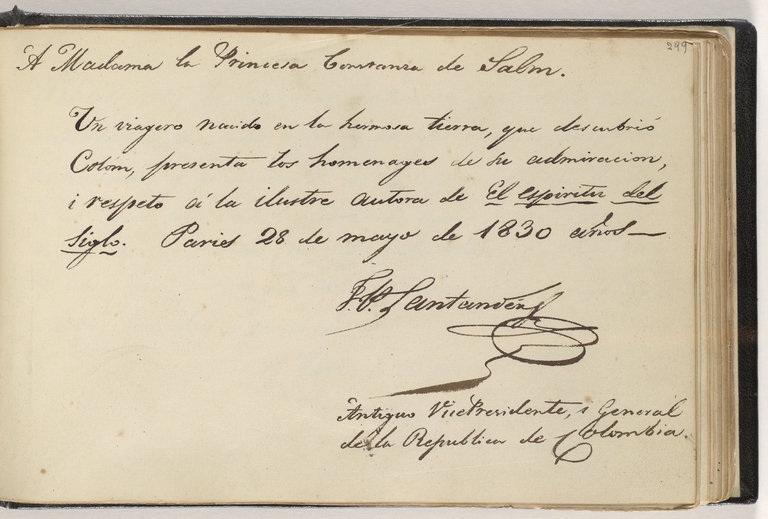 299
A Madama la Princesa Constanza de Salm.
Un viagero nacido en la hermosa tierra, que descubrió
Colón, presenta los homenages de su admiracion,
i respeto á la ilustre autora de El espiritu del
siglo. Paris 28 de mayo de 1830 años—
F. P. Santander
Antiguo VicePresidente, i General
de la Republica de Colombia.